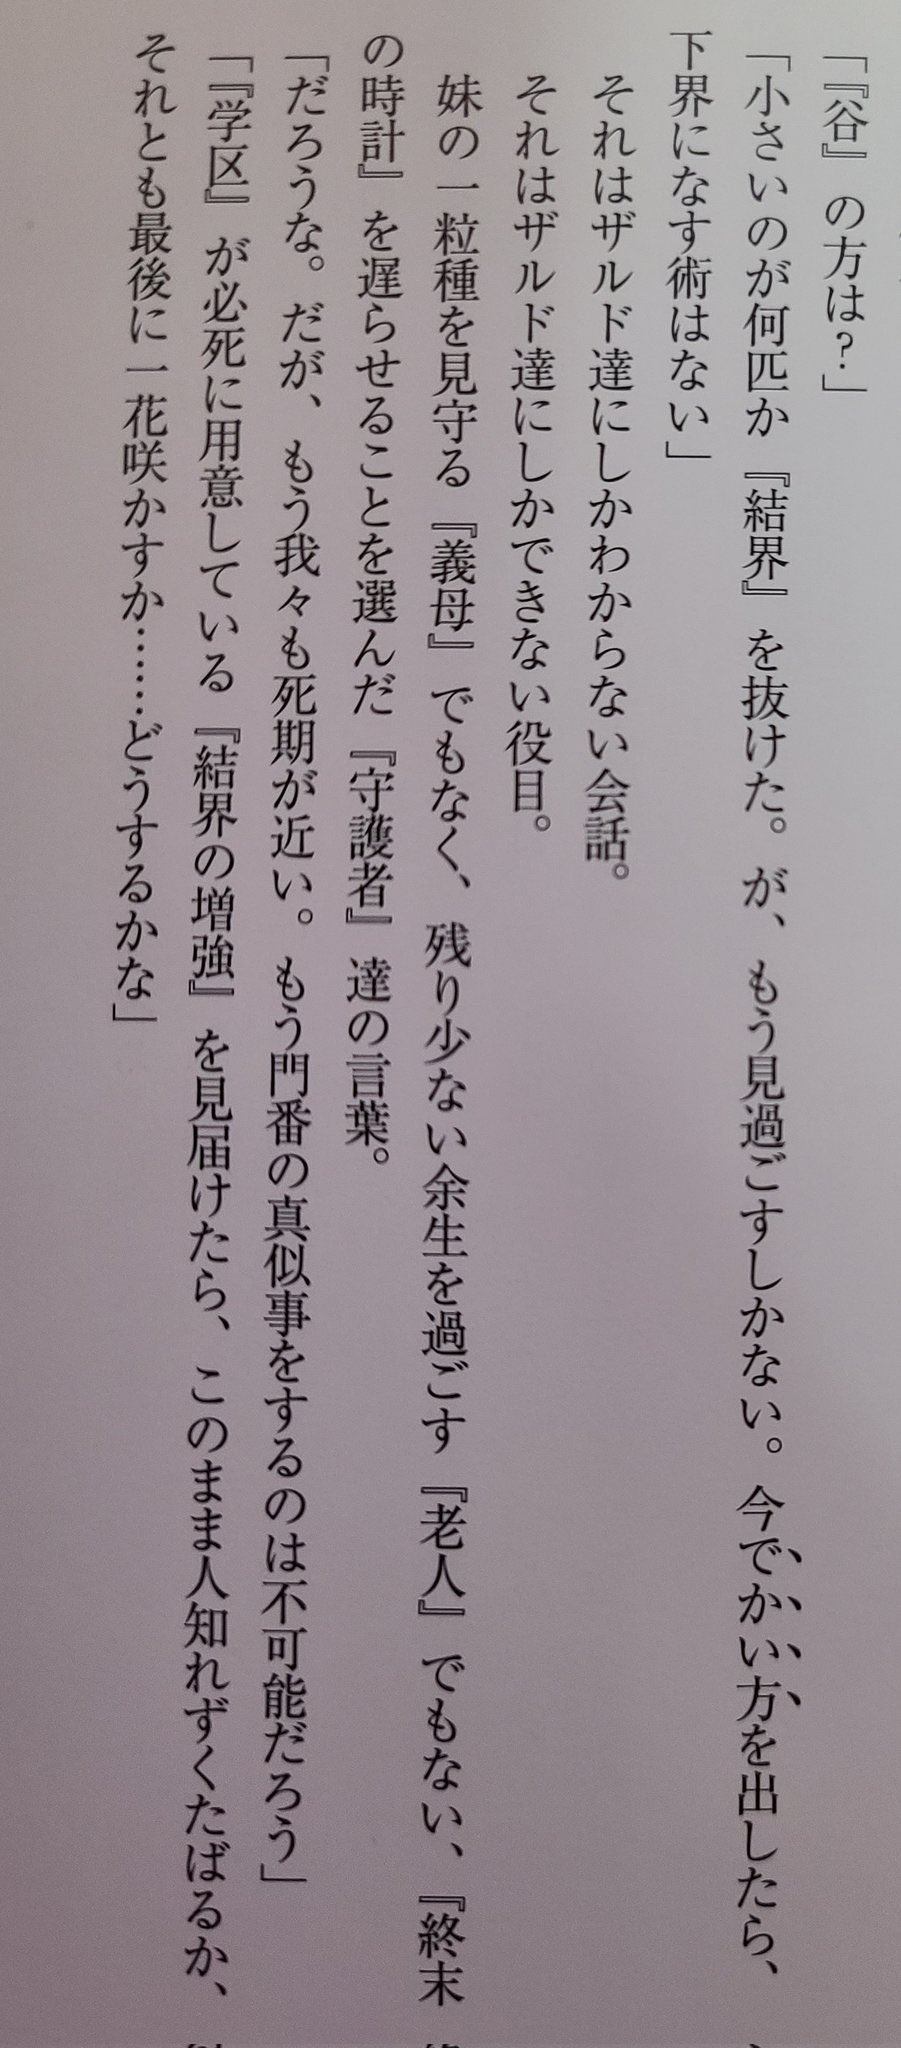 「『谷』の方は？」
「小さいのが何匹か『結界』を抜けた。が、もう見過ごすしかない。今でかい方を出したら、
下界になす術はない」
それはザルド達にしかわからない会話。
それはザルド達にしかできない役目。
妹の一粒種を見守る『義母』でもなく、残り少ない余生を過ごす『老人』でもない、『終末
の時計』を遅らせることを選んだ『守護者』達の言葉。
「だろうな。だが、もう我々も死期が近い。もう門番の真似事をするのは不可能だろう」
「『学区』が必死に用意している『結界の増強』を見届けたら、このまま人知れずくたばるか、
それとも最後に一花咲かすか……どうするかな」